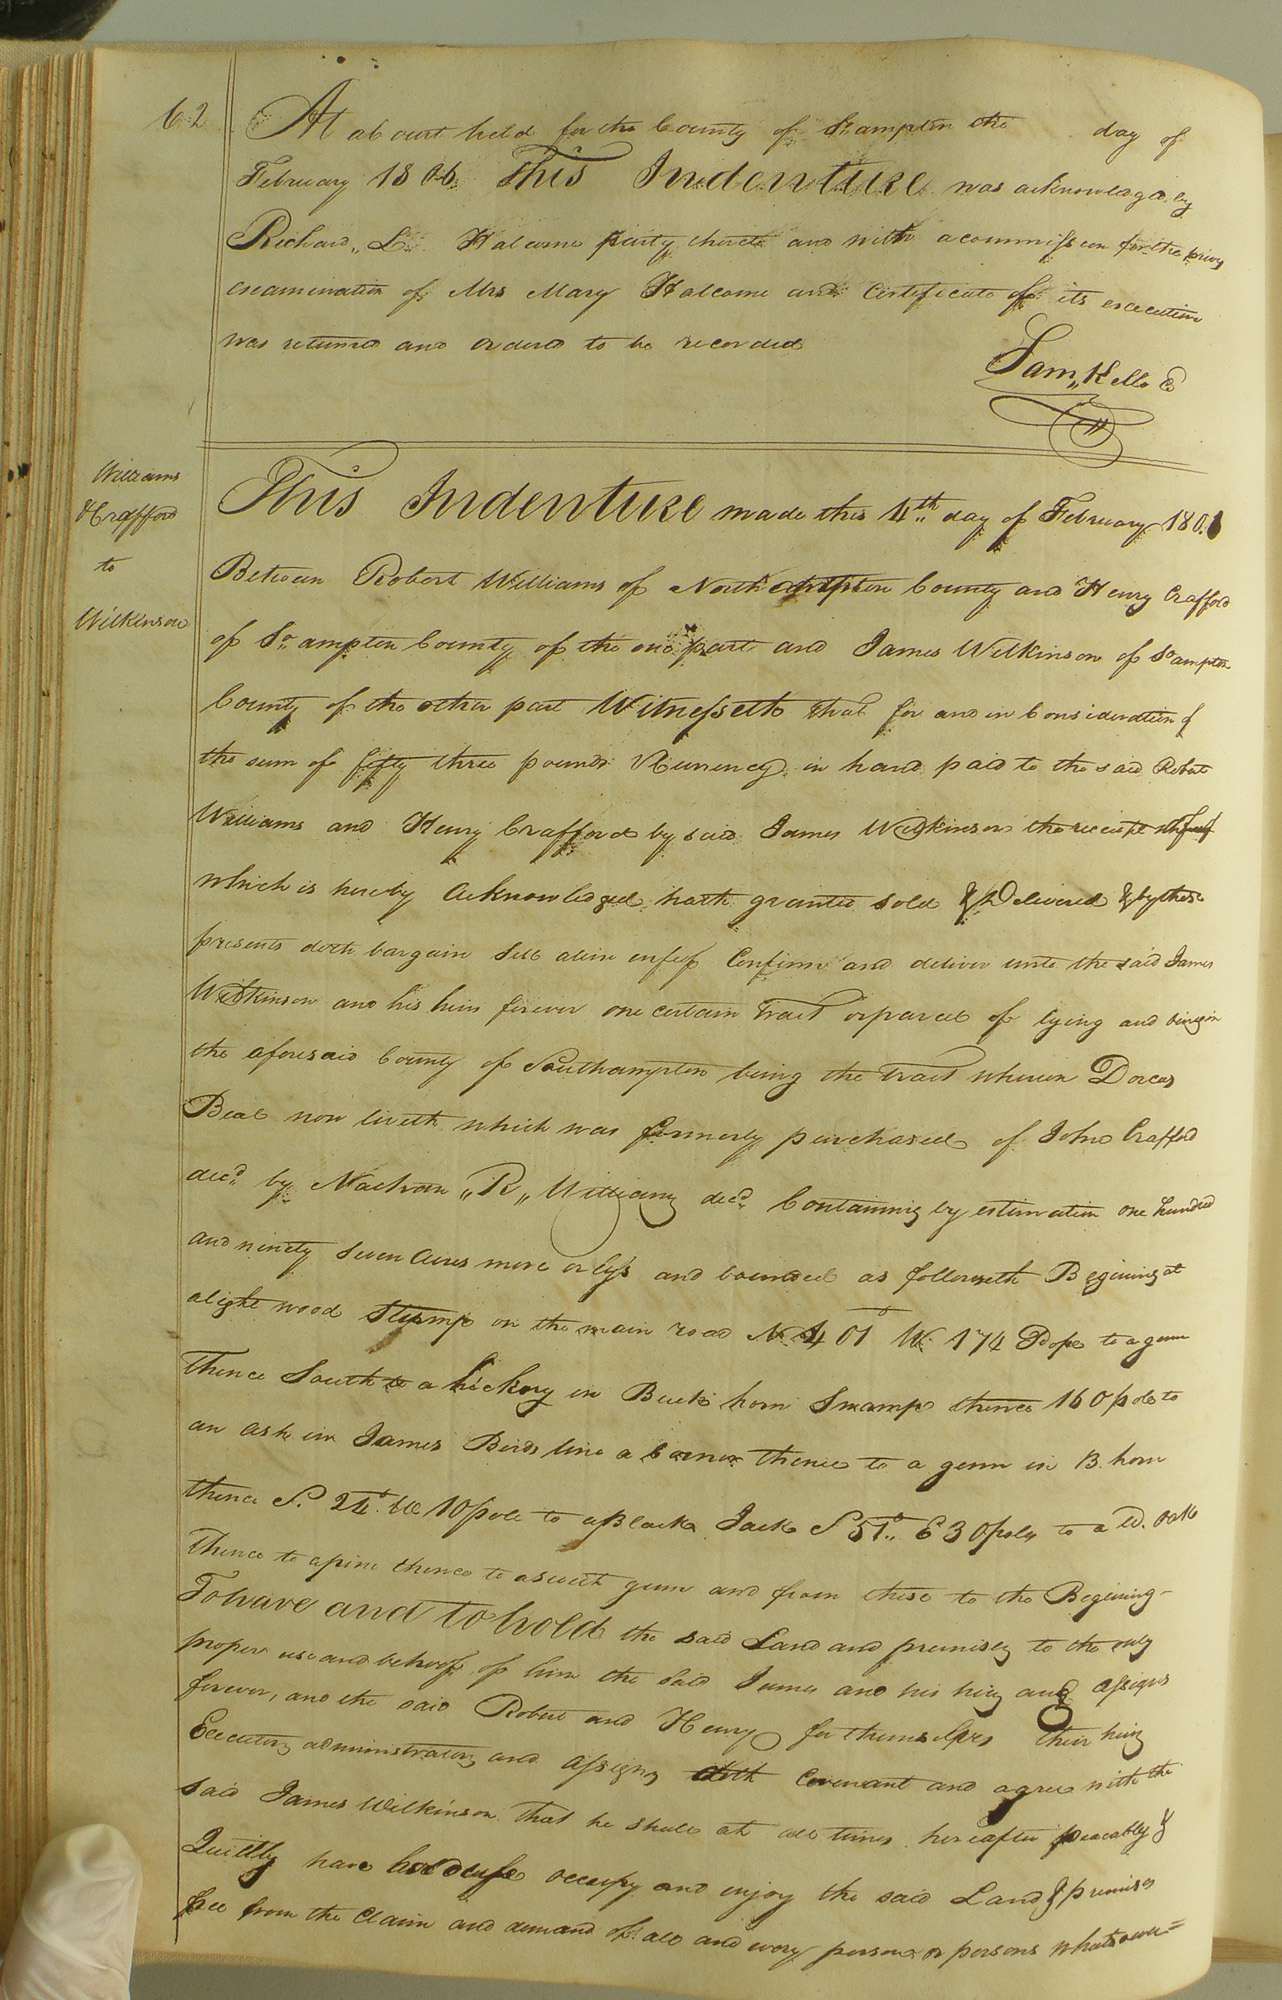 62
At a Court held for the County of So. ampton the day of
February 1806 This Indenture was acknowledged by
Richard „ L. Halcome party thereto and with a commission for the privy
examination of Mrs Mary Halcome and Certificate of its execution
was returned and ordered to be recorded
Sam„ Kello C
Williams
& Crafford
to
Wilkinson
This Indenture made this 4th day of February 180
Between Robert Williams of Northampton County and Henry Crafford
of So. ampton County of the one part and James Wilkinson of So ampton
County of the other part Witnesseth that for and in Consideration of
the sum of fifty three pounds VCurrency in hand paid to the said Robert
Williams and Henry Crafford by said James Wilkinson the receipt whereof
which is hereby Acknowledged hath granted sold & Delivered & by these
presents doth bargain Sell alien enfeof Confirm and deliver unto the said James
Wilkinson and his heirs forever one certain Tract or parcel of lying and being in
the aforesaid County of Southampton being the tract wherein Dorcas
Beal now liveth which was formerly purchased of John Crafford
decd. by Nathan „ R „ Williams decd. Containing by estimation one hundred
and ninety Seven Acres more or less and bounded as followeth Begining at
a light wood Stump on the main road N 40° W 174 Pops to a gum
Thence South to a hickory in Buck horn Swamp thence 160 poles to
an ash in James Birds line a corner thence to a gum in B. horn
thence S. 24° W 10 pole to a Black Jack S 51° E 30 poles to a W. oak
Thence to a pine thence to a sweet gum and from thise to the Begining-
To have and to hold the said Land and premises to the only
proper use and behoof of him the said James and his heirs and assigns
forever, and the said Robert and Henry for themselves their heirs
Executors administrators and assigns doth Covenant and agree with the
said James Wilkinson that he shall at all times hereafter peaceably &
Quietly have hold use occupy and enjoy the said Land & premises
free from the claim and demand of all and every person or persons whatsoever=